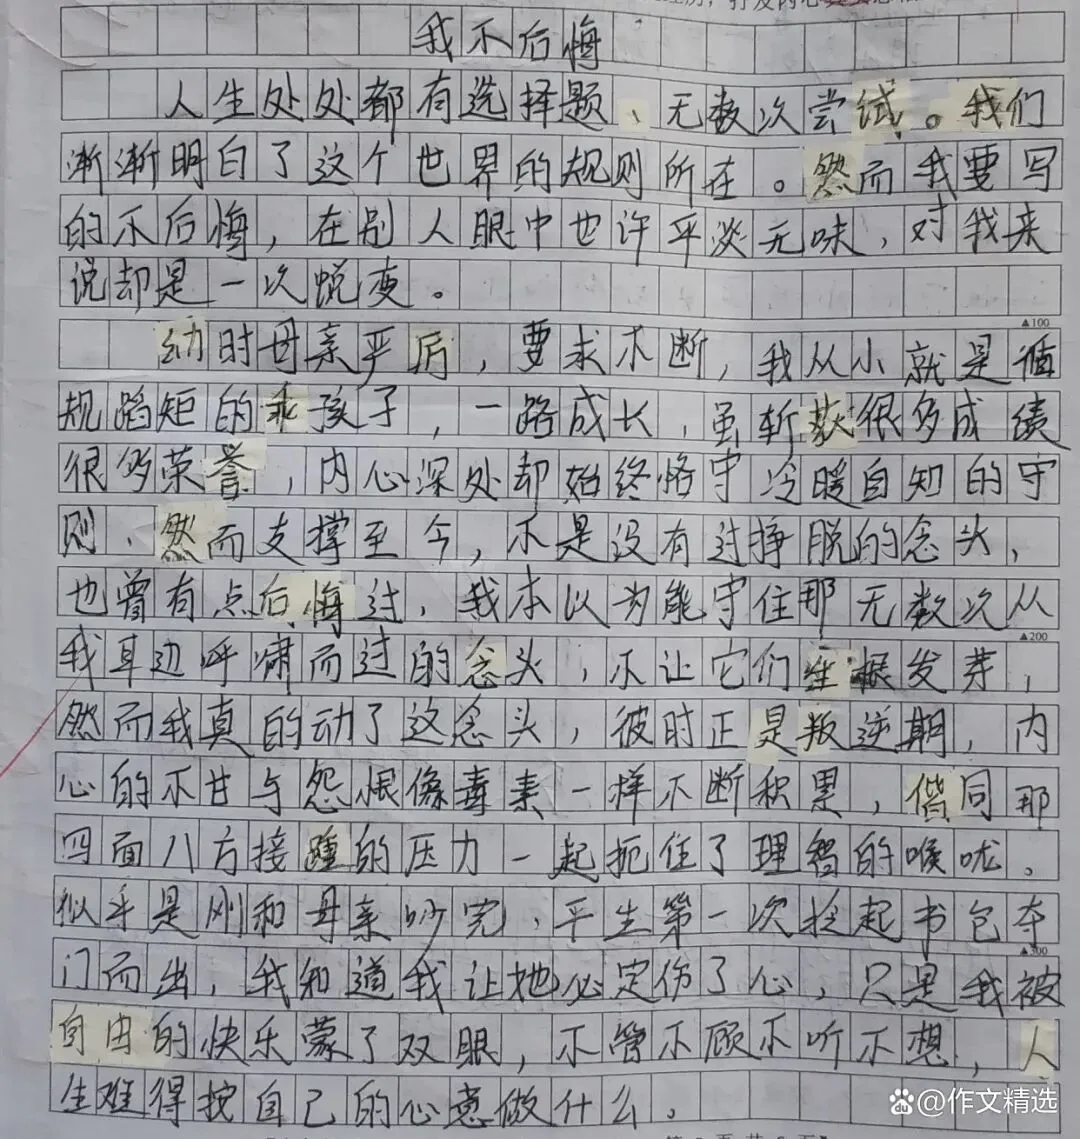 我不后悔
人生处处都有选择题、无数次尝试。我们
渐渐明白了这个世界的规则所在。然而我要写
的不后悔，在别人眼中也许平淡无味，对我来
说却是一次蜕变。
▲100
幼时母亲严厉，要求不断，我从小就是循
规蹈矩的乖孩子，一路成长，虽斩获很多成绩
很多荣誉，内心深处却始终恪守冷暖自知的守
则、然而支撑至今，不是没有过挣脱的念头，
也曾有点后悔过，我本以为能守住那无数次从
▲200
我耳边呼啸而过的念头，不让它们生根发芽，
然而我真的动了这念头，彼时正是叛逆期，内
心的不甘与怨恨像毒素一样不断积累，偕同那
四面八方接踵的压力一起扼住了理智的喉咙。
似乎是刚和母亲吵完，平生第一次拴起书包夺
▲300
门而出，我知道我让她必定伤了心，只是我被
自由的快乐蒙了双眼，不管不顾不听不想，人
生难得按自己的心意做什么。
@作文精选